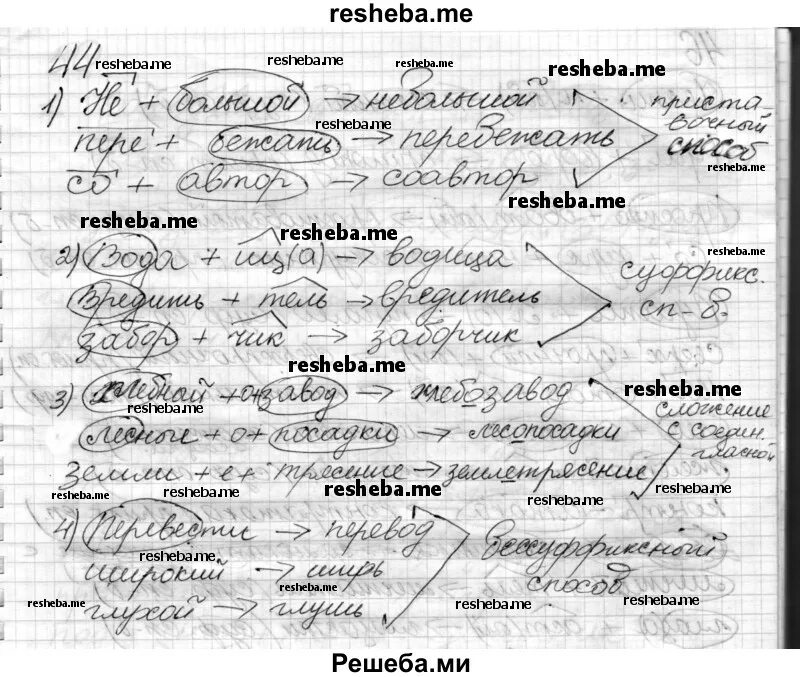 resheba.me
44 resheba.me resheba.me resheba.me resheba.me
1) Не + большой → небольшой
resheba.me
приставочный способ
пере + бежать → перебежать
resheba.me
со + автор → соавтор
resheba.me resheba.me
resheba.me resheba.me
2) Вода + иц(а) → водница
суффикс. сп-б.
Вредить + тель → вредитель
resheba.me
забор + чик → заборчик
resheba.me
3) хлебный + о + завод → хлебозавод
resheba.me
resheba.me
сложение с соедин. гласной
лесные + о + посадки → лесопосадки
земли + е + трясение → землетрясение
resheba.me resheba.me resheba.me resheba.me resheba.me
4) Перевести → перевод
resheba.me
бессуффиксный способ
широкий → ширь
resheba.me
глухой → глушь
resheba.me resheba.me resheba.me
Решеба.ми